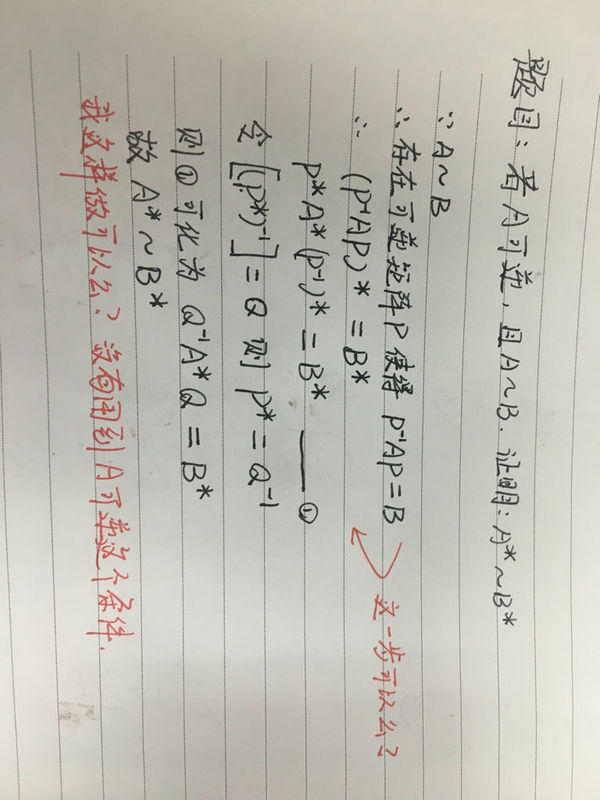 题目：若A可逆，且A~B. 证明：A*~B*
∵ A~B
∴ 存在可逆矩阵P 使得 P⁻¹AP=B
∴ (P⁻¹AP)* = B*
这一步可以么？
P*A*(P⁻¹)* = B* ——①
令[(P*)⁻¹]=Q 则 P*=Q⁻¹
则①可化为 Q⁻¹A*Q=B*
故 A*~B*
我这样做可以么？没有用到A可逆这个条件.